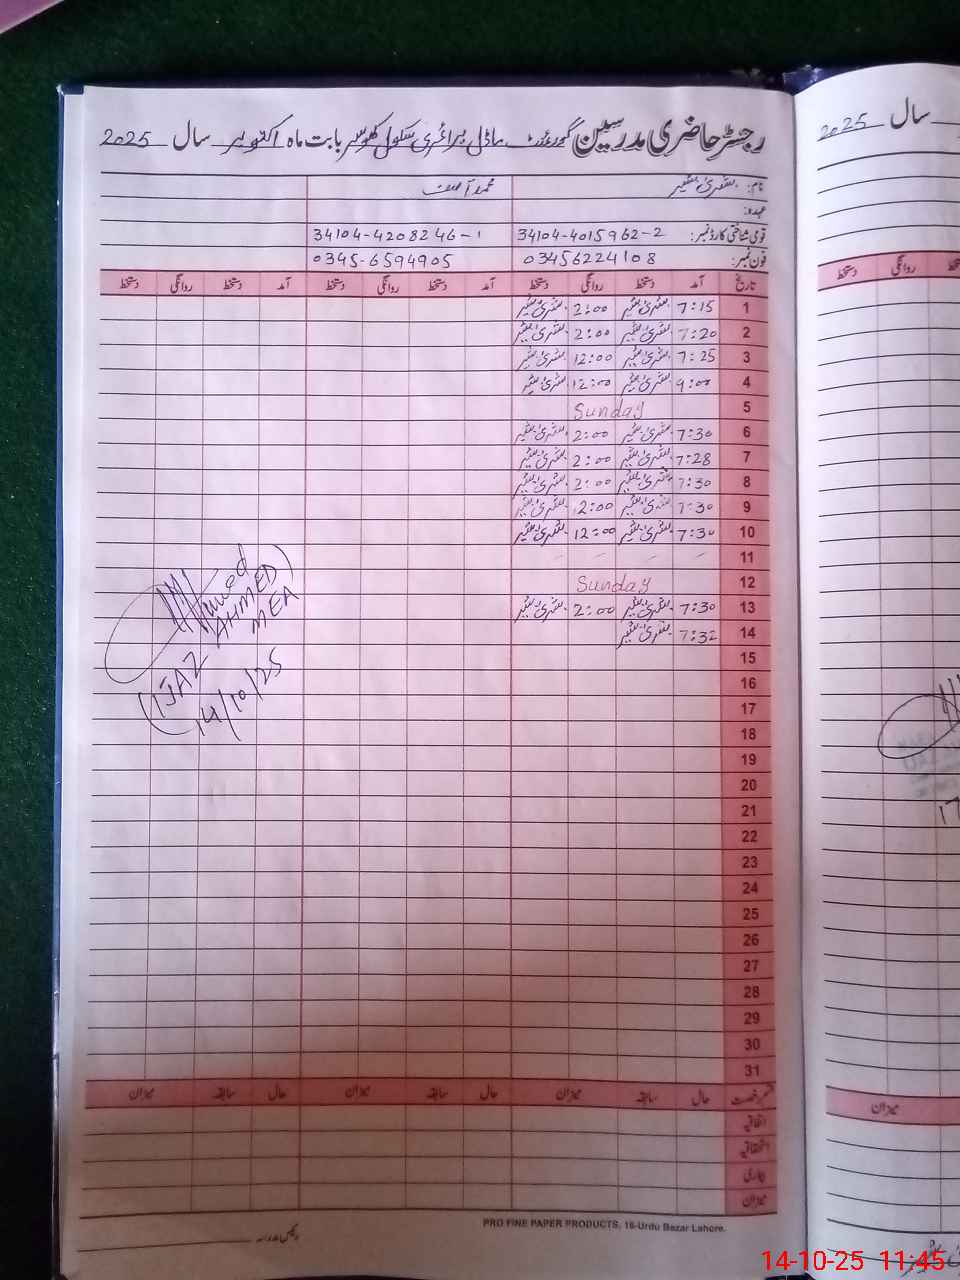 رجسٹر حاضری مدرسین گورنمنٹ ماڈل پرائمری سکول بابت ماہ اکتوبر سال 2025
نام: بشریٰ بشیر
عہدہ:
قومی شناختی کارڈ نمبر: 34104-4015962-2 34104-4208246-1
فون نمبر: 03456224108 0345-6594905
تاریخ آمد دستخط روانگی دستخط آمد دستخط روانگی دستخط آمد دستخط روانگی دستخط
1 7:15 بشریٰ بشیر 2:00 بشریٰ بشیر
2 7:20 بشریٰ بشیر 2:00 بشریٰ بشیر
3 7:25 بشریٰ بشیر 12:00 بشریٰ بشیر
4 9:00 بشریٰ بشیر 12:00 بشریٰ بشیر
5 Sunday
6 7:30 بشریٰ بشیر 2:00 بشریٰ بشیر
7 7:28 بشریٰ بشیر 2:00 بشریٰ بشیر
8 7:30 بشریٰ بشیر 2:00 بشریٰ بشیر
9 7:30 بشریٰ بشیر 2:00 بشریٰ بشیر
10 7:30 بشریٰ بشیر 12:00 بشریٰ بشیر
11 – – –
12 Sunday
13 7:30 بشریٰ بشیر 2:00 بشریٰ بشیر
14 7:32 بشریٰ بشیر
15
16
17
18
19
20
21
22
23
24
25
26
27
28
29
30
31
(IJAZ AHMED)
MEA
14/10/25
قسم رخصت حال سابقہ میزان حال سابقہ میزان حال سابقہ میزان
اتفاقیہ
استحقاقیہ
بیماری
میزان
PRO FINE PAPER PRODUCTS, 16-Urdu Bazar Lahore.
رئیس مدرسہ
سال 2025
روانگی دستخط
میزان
14-10-25 11:45